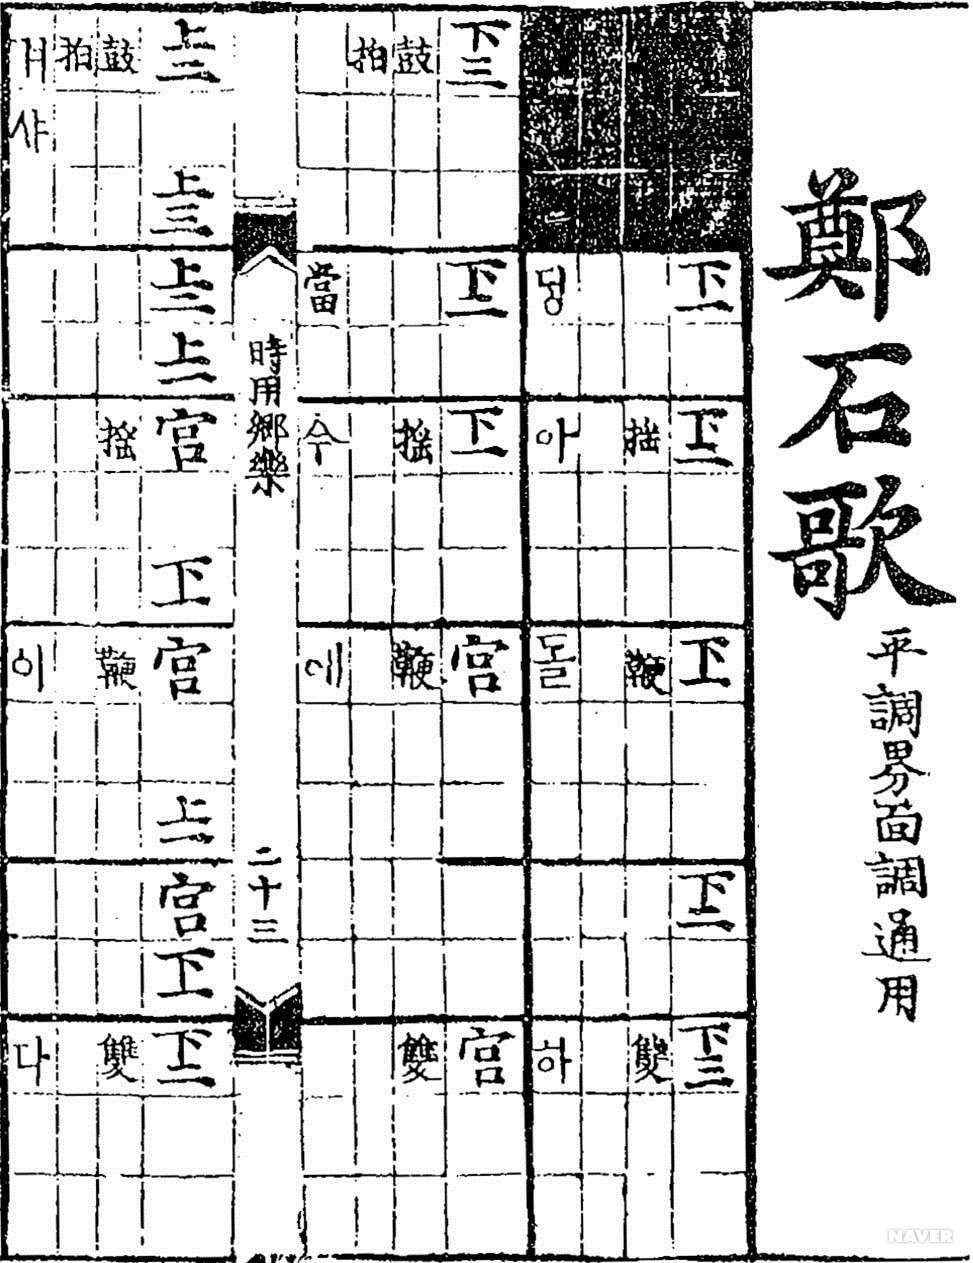 鄭石歌
平調界面調通用
下一 下二 下一 下二 下三
搖 鞭 雙
딩 아 돌 하
下三 下二 下一 宮 宮
鼓 搖 鞭 雙
拍
當 今 에
時用鄉樂 二十三
上二 上三 上二 上一 宮 下一 宮 上一 宮 下一 下二
鼓 搖 鞭 雙
拍
샤 이 다
NAVER